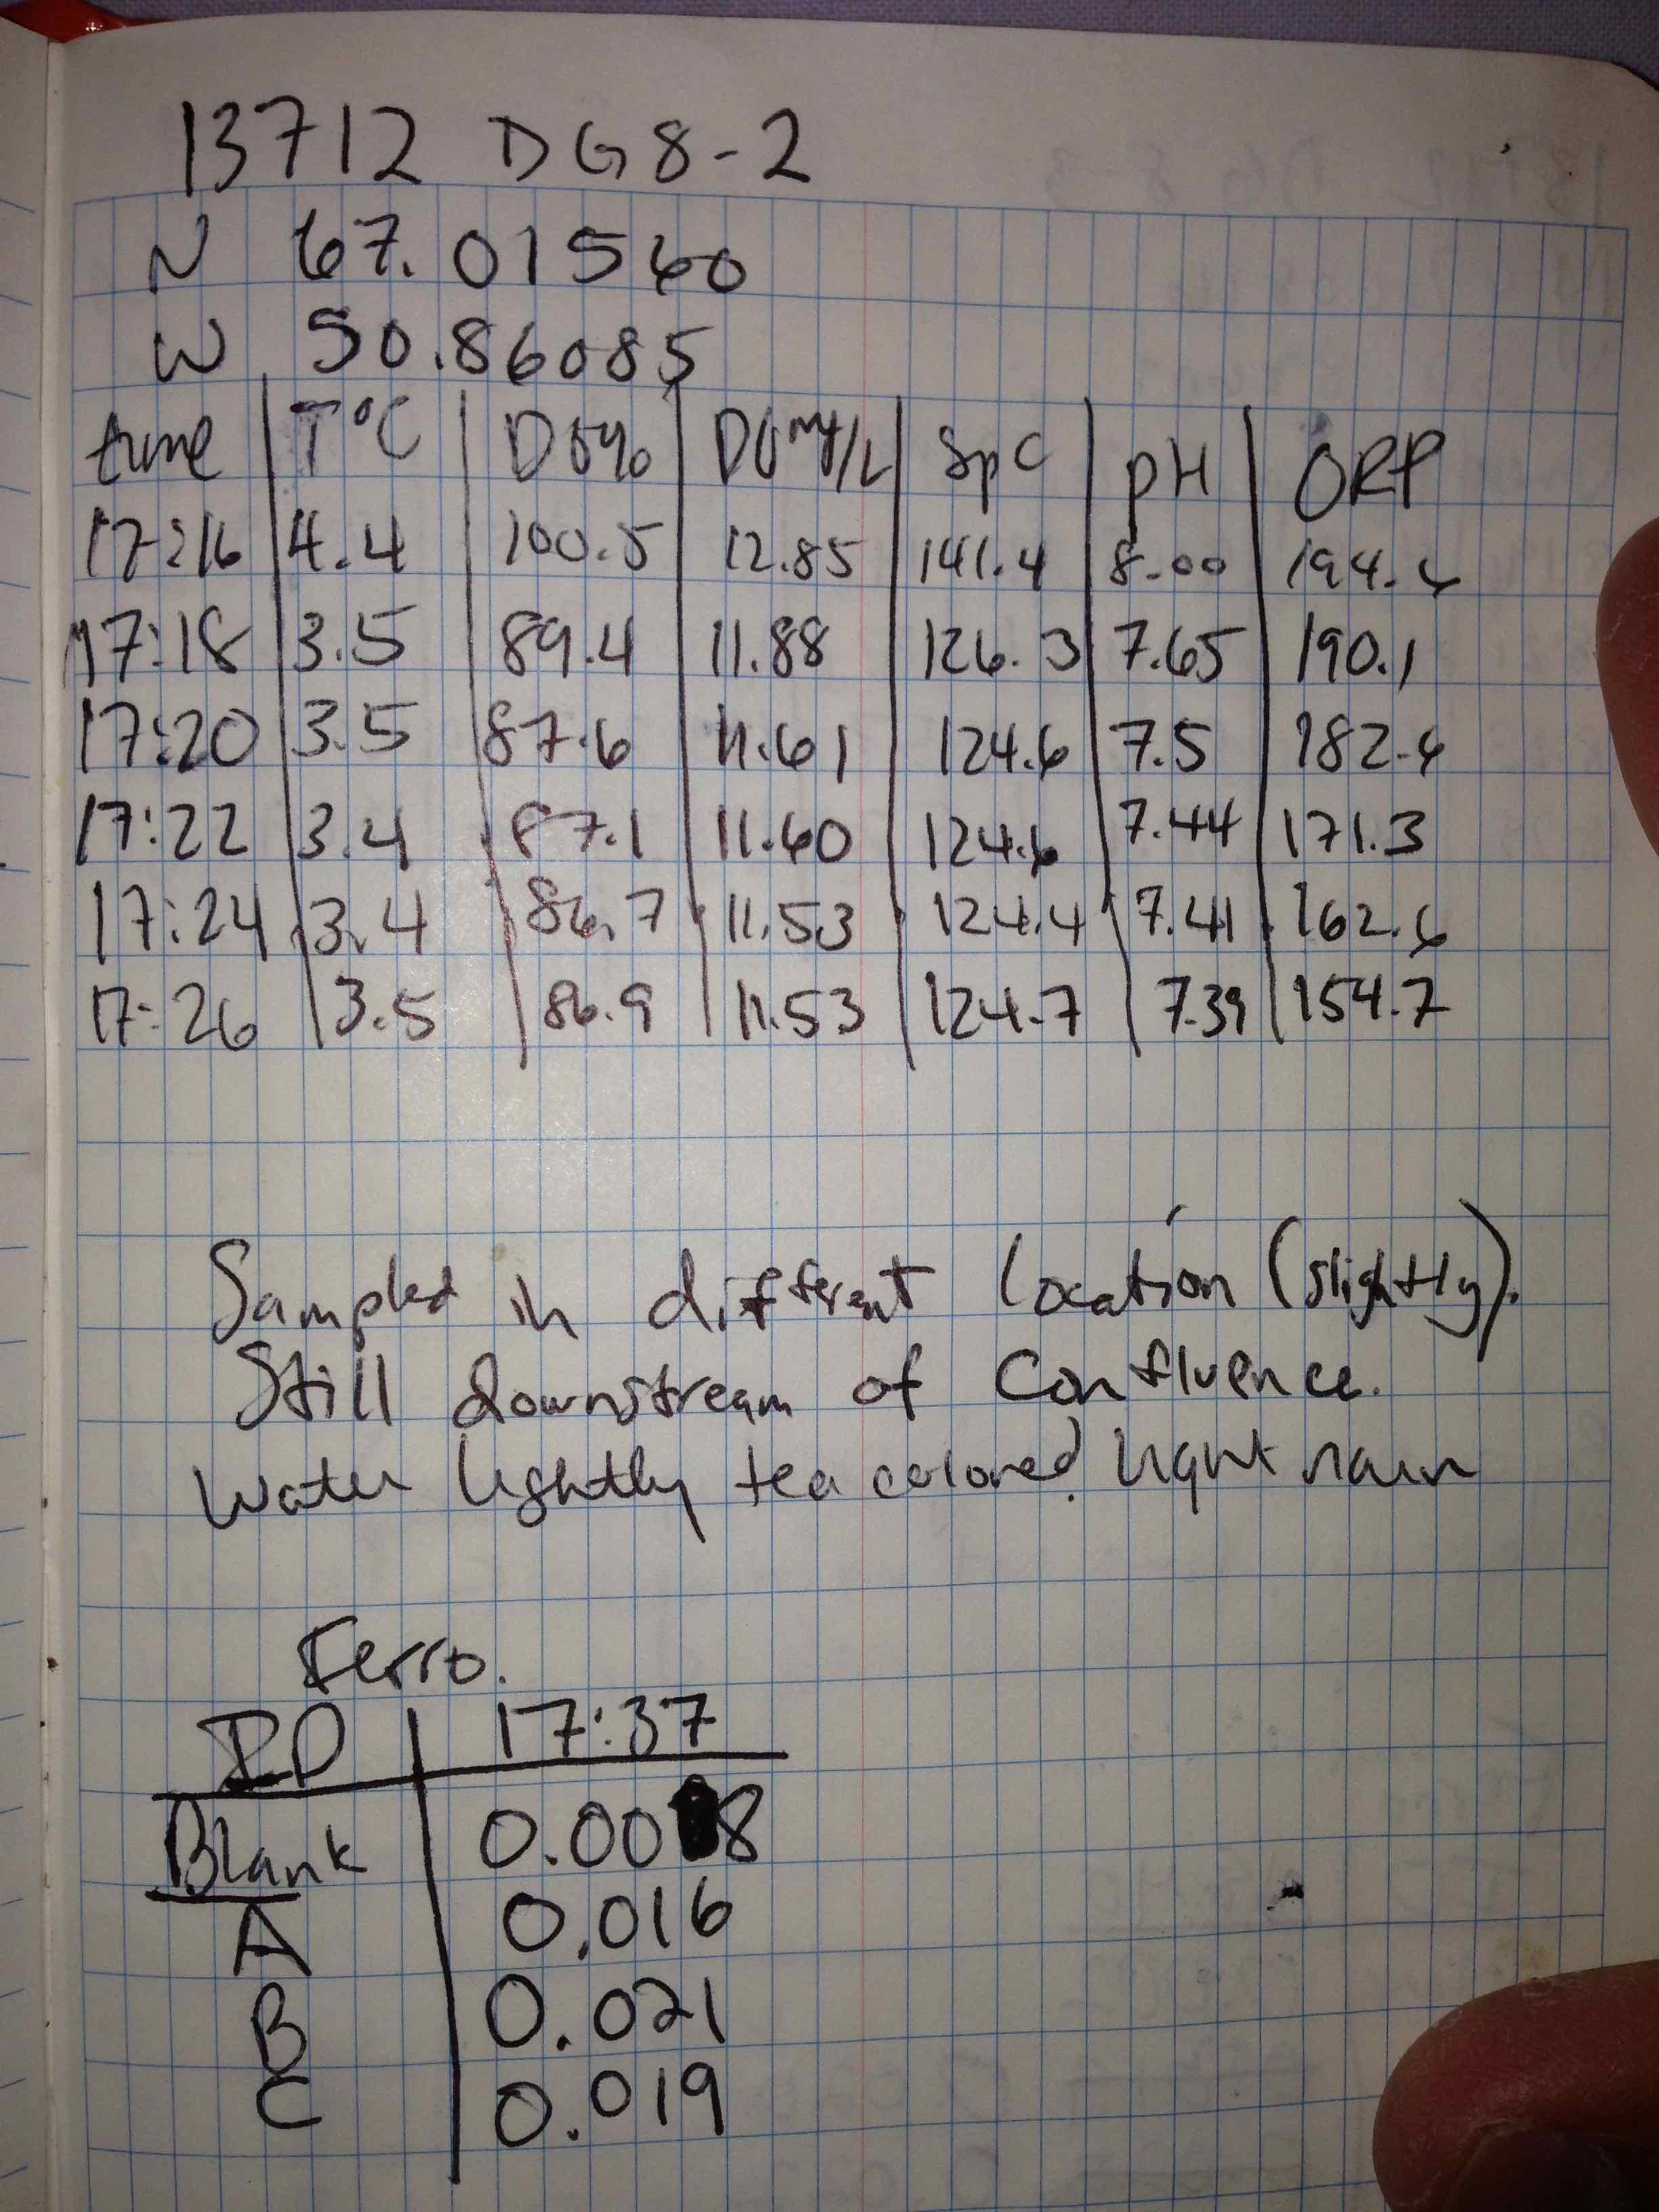 13712 DG8-2
N 67.01560
W 50.86085
time T°C DO% DO mg/L SpC pH ORP
17:16 4.4 100.5 12.85 141.4 8.00 194.6
17:18 3.5 89.4 11.88 126.3 7.65 190.1
17:20 3.5 87.6 11.61 124.6 7.5 182.6
17:22 3.4 87.1 11.60 124.6 7.44 171.3
17:24 3.4 86.7 11.53 124.4 7.41 162.6
17:26 3.5 86.9 11.53 124.7 7.39 154.7
Sampled in different location (slightly).
Still downstream of confluence.
Water lightly tea colored. light rain
Ferro.
ID 17:37
Blank 0.008
A 0.016
B 0.021
C 0.019